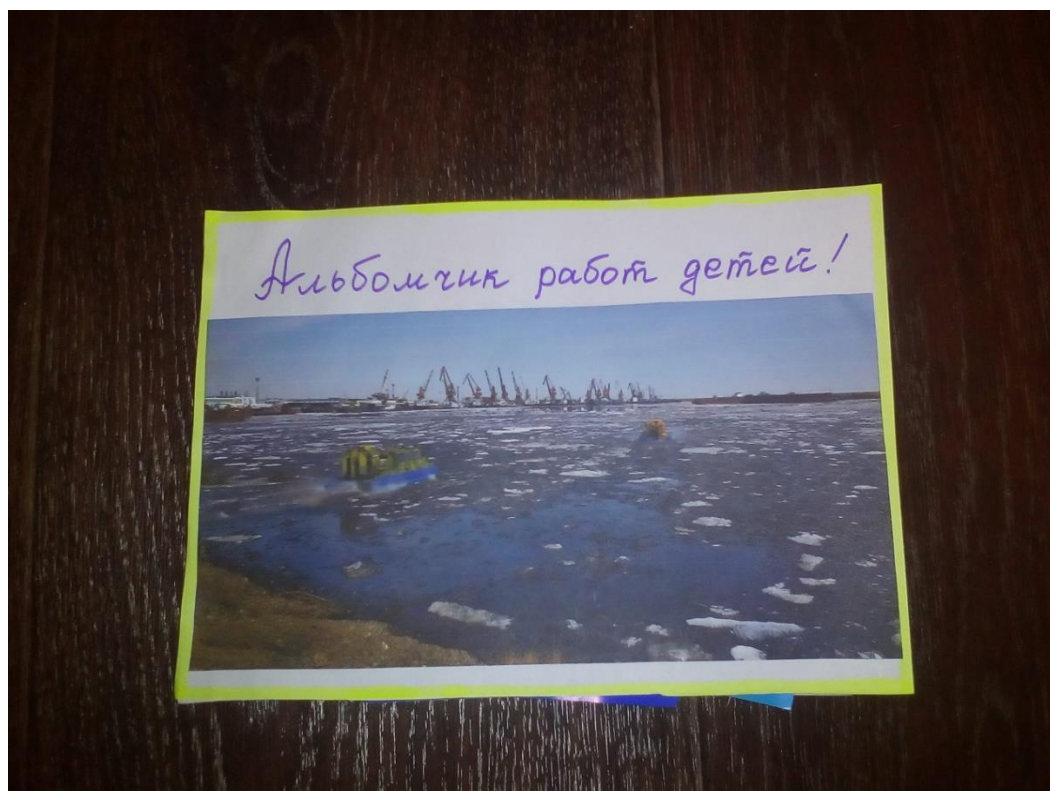 Альбомчик работ детей!